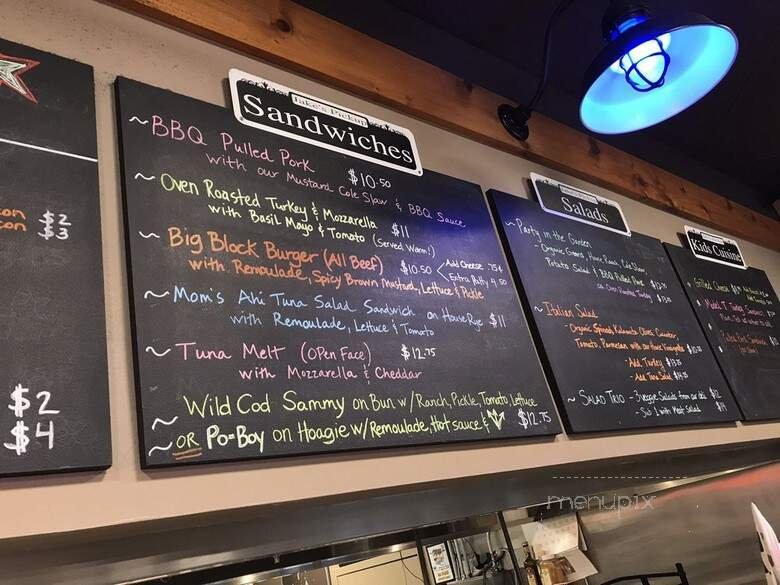 con $2
con $3
$2
$4
Jake's Pickup
Sandwiches
~BBQ Pulled Pork
with our Mustard Cole Slaw & BBQ Sauce $10.50
~Oven Roasted Turkey & Mozzarella
with Basil Mayo & Tomato (Served Warm!) $11
~Big Block Burger (All Beef) $10.50 Add Cheese .75¢
with Remoulade, Spicy Brown Mustard, Lettuce & Pickle Extra Patty 4.50
~Mom's Ahi Tuna Salad Sandwich on House Rye $11
with Remoulade, Lettuce & Tomato
~Tuna Melt (Open Face) $12.75
with Mozzarella & Cheddar
~Wild Cod Sammy on Bun w/Ranch, Pickle, Tomato, Lettuce
~OR Po=Boy on Hoagie w/Remoulade, Hot sauce & $12.75
Salads
~Party in the Garden
-Organic Greens, House Ranch, Cole Slaw,
Potato Salad & BBQ Pulled Pork
or Oven Roasted Turkey
~Italian Salad
-Organic Greens, Kalamata Olives, Cucumber
Tomato, Parmesan with our House Vinaigrette
-Add Turkey
-Add Tuna Salad
~Salad Trio - 3 veggie Salads from our deli $12
- Sub 1 with Meat salad $14
Kids Cuisine
Grilled Cheese
menupix